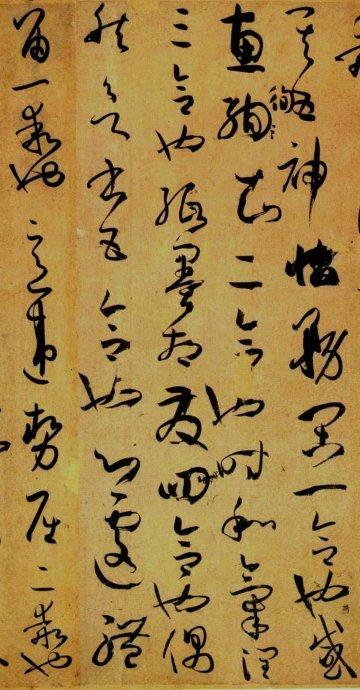 其五神怡務閑一合也感
惠徇知二合也時和氣潤
三合也紙墨相發四合也偶
然欲書五合也心遽體
留一乖也意違勢屈二乖也